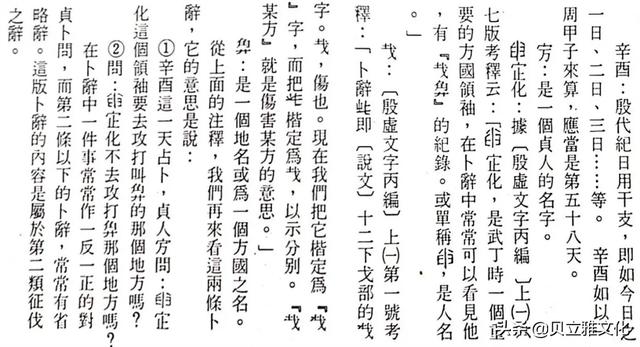 辛酉：殷代紀日用干支，即如今日之
一日、二日、三日……等。 辛酉如以
周甲子來算，應當是第五十八天。
：是一個貞人的名字。
化：據〔殷虛文字丙編〕上㈠、
七版考釋云：「化，是武丁時一個重
要的方國領袖，在卜辭中常常可以看見他
，有『』的紀錄。或單稱，是人名
。」
：〔殷虛文字丙編〕上㈠第一號考
釋：「卜辭即〔說文〕十二下戈部的
字。，傷也。現在我們把它楷定爲『
』字，而把楷定爲，以示分別。『
某方』就是傷害某方的意思。」
：是一個地名或爲一個方國之名。
從上面的注釋，我們再來看這兩條卜
辭，它的意思是說：
①辛酉這一天占卜，貞人問：
化這個領袖要去攻打叫的那個地方嗎？
②問：化不去攻打那個地方嗎？
在卜辭中一件事常常作一反一正的對
貞卜問，而第二條以下的卜辭，常常有省
略辭。這版卜辭的內容是屬於第二類征伐
之辭。
头条@贝立雅文化